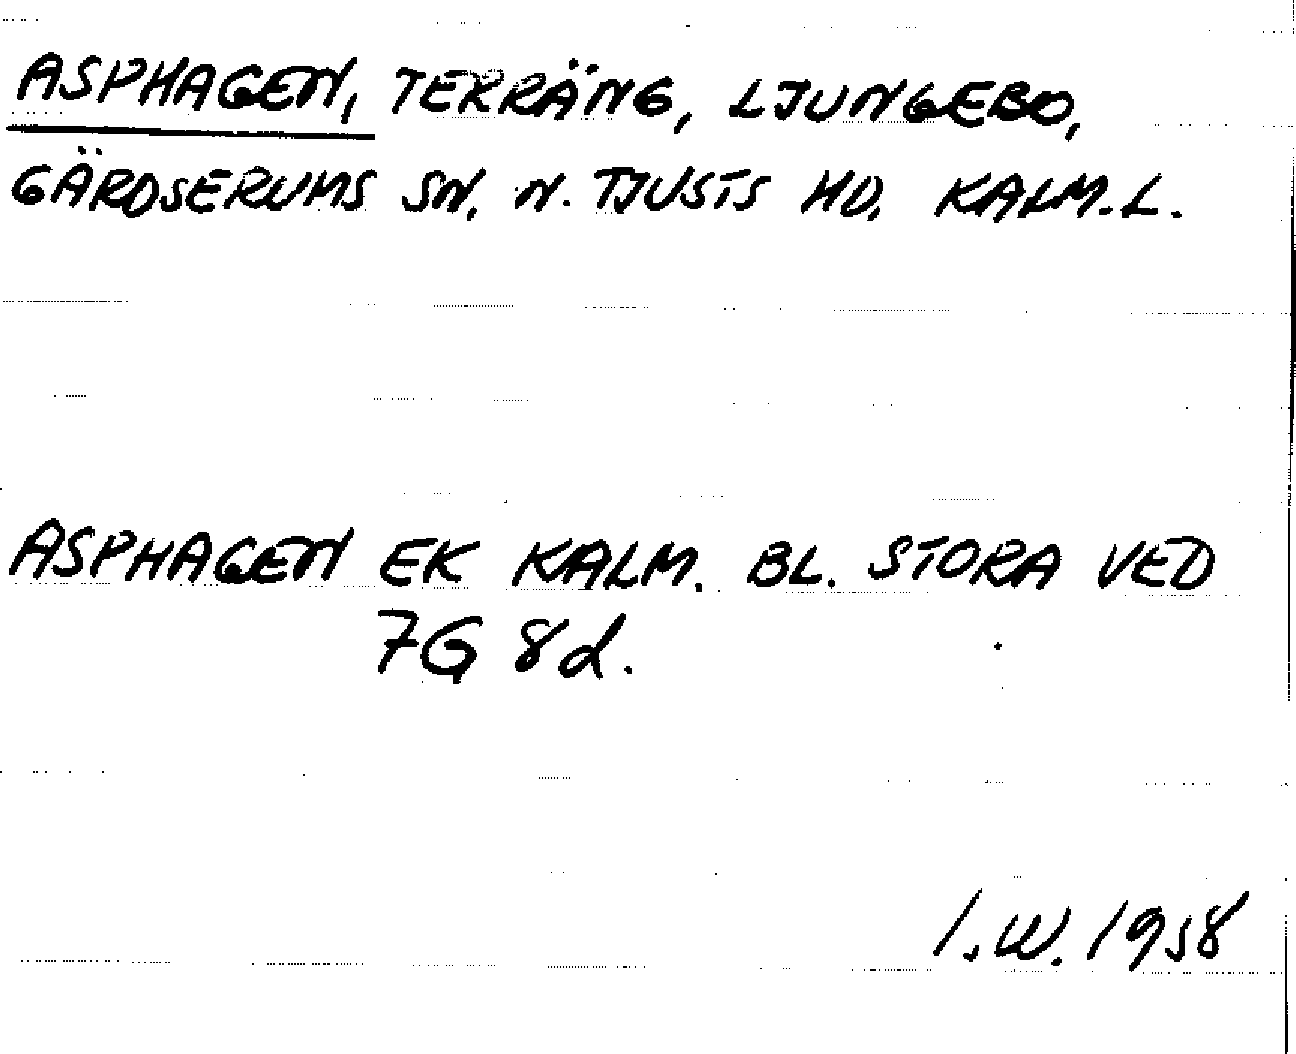 ASPHAGEN, TERRÄNG, LJUNGEBO,
GÄRDSERUMS SN, N. TJUSTS HD, KALM.L.
ASPHAGEN EK KALM. BL. STORA VED
7G 8d.
I.W. 1958